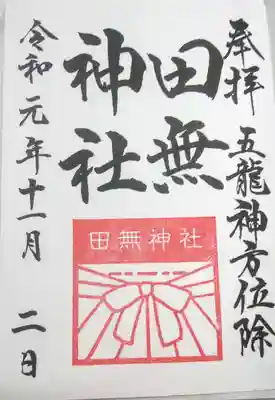 奉拝 五龍神方位除
田無
神社
田無神社
令和元年十一月 二日